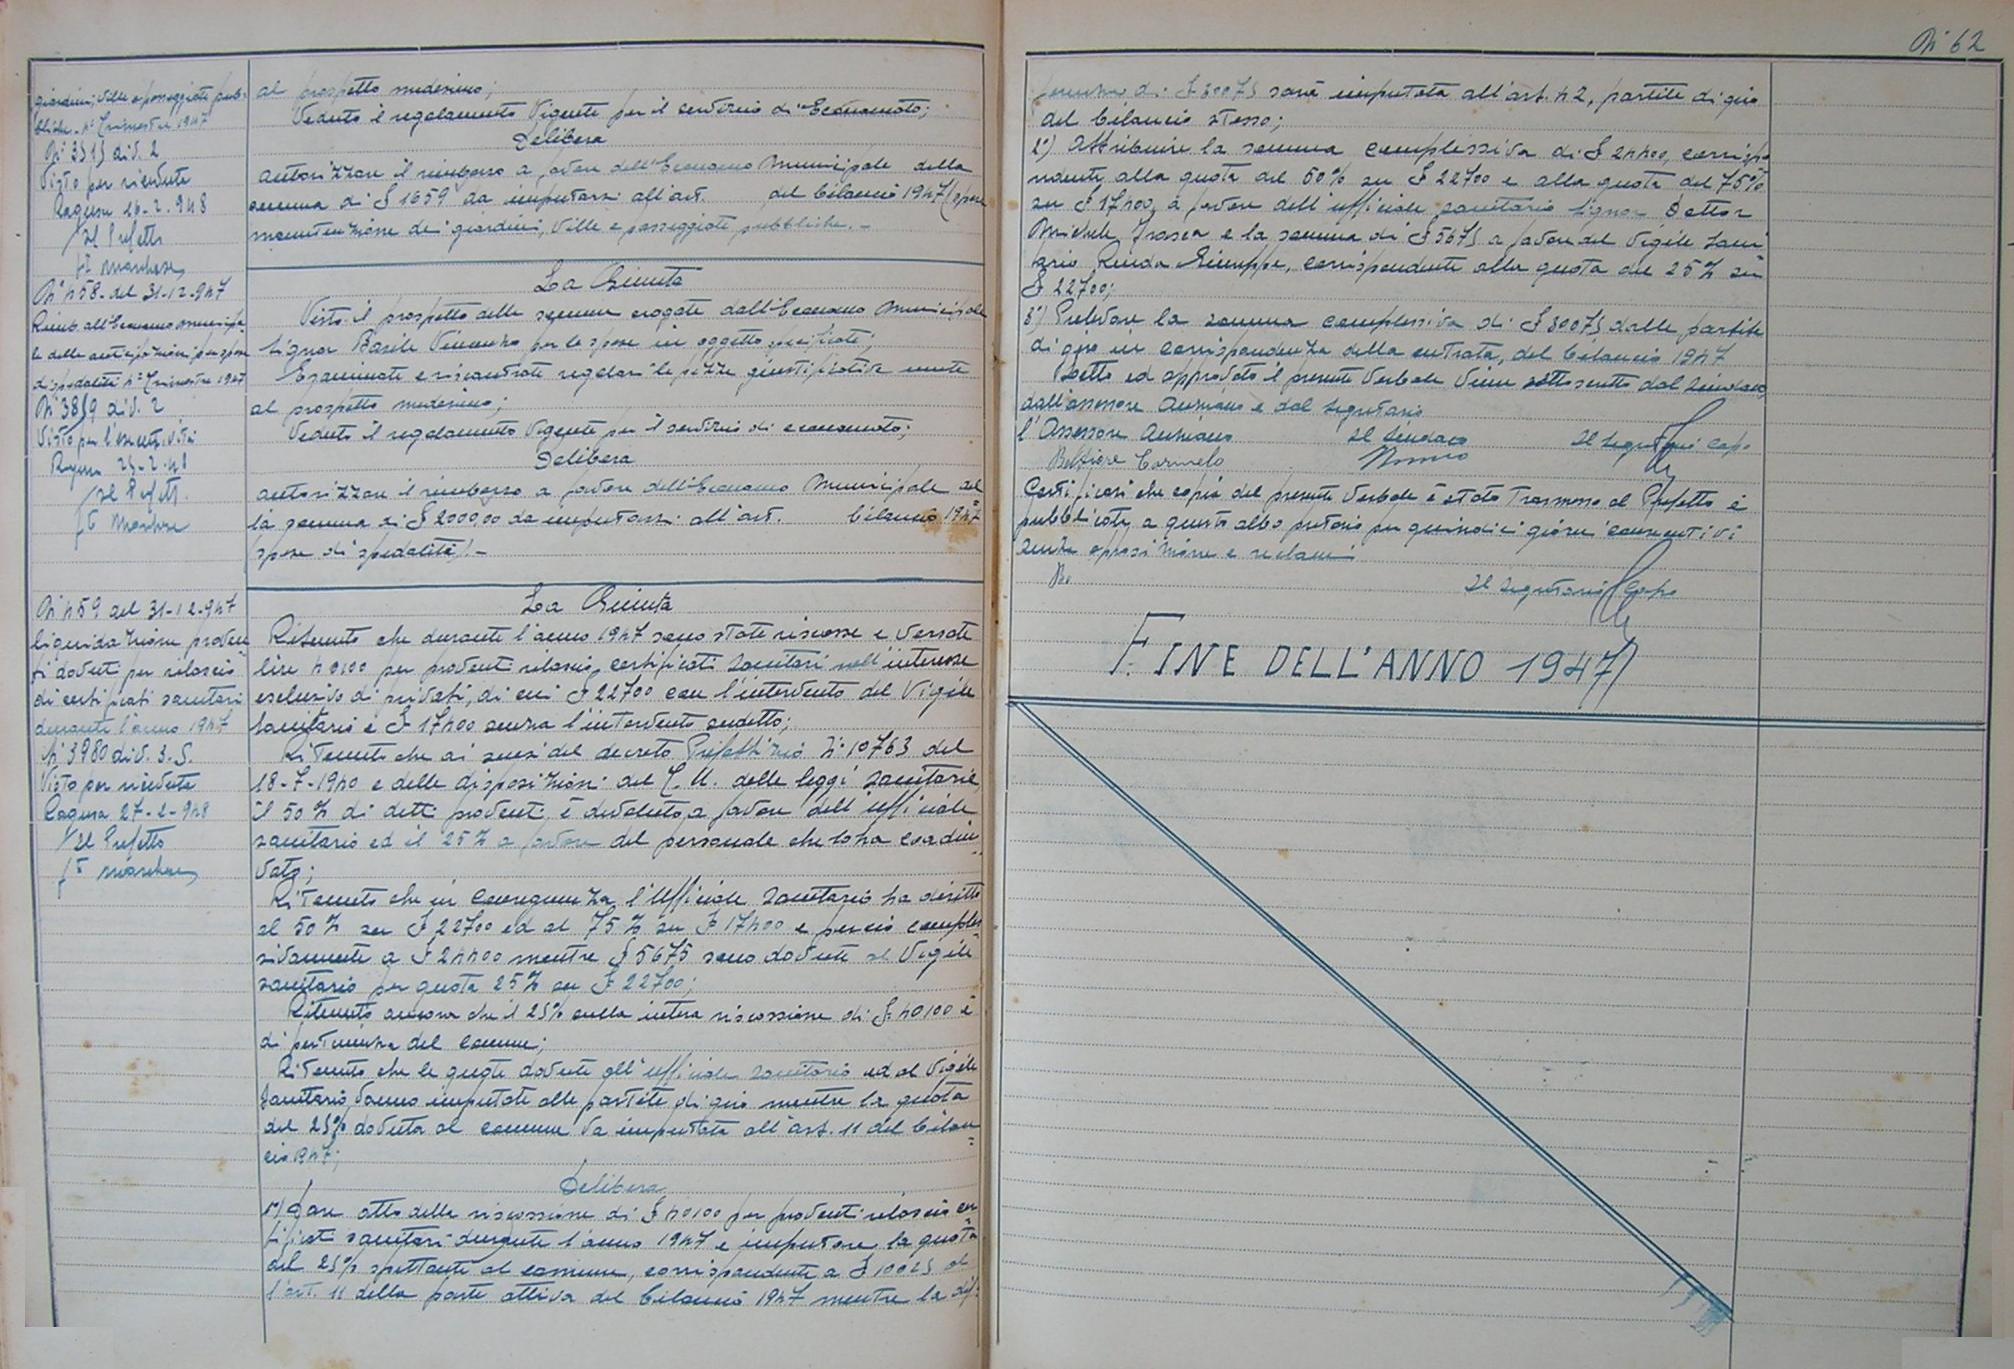 giardini, ville e passeggiate pub-
bliche - 4° Trimestre 1947
N° 3515 div. 2
Visto per ricevuta
Ragusa 26-2-948
Il Prefetto
f.to Marchese
N° 458 - del 31-12-947
Rimb. all'Economo municipa-
le delle anticipazioni per spese
di spedalità 4° Trimestre 1947
N° 3859 div. 2
Visto per l'esecutività
Ragusa 25-2-48
Il Prefetto
f.to Marchese
N° 459 del 31-12-947
liquidazione proven-
ti dovuti per rilascio
di certificati sanitari
durante l'anno 1947
N° 3980 div. 3. S.
Visto per ricevuta
Ragusa 27-2-948
Il Prefetto
f.to Marchese
al prospetto medesimo;
Veduto il regolamento vigente per il servizio di Economato;
Delibera
autorizzare il rimborso a favore dell'Economo Municipale della
somma di £ 1659 da imputarsi all'art. del bilancio 1947 (spese
manutenzione dei giardini, ville e passeggiate pubbliche. -
La Giunta
Visto il prospetto delle somme erogate dall'Economo Municipale
Signor Basile Vincenzo per le spese in oggetto specificate;
Esaminate e riscontrate regolari le pezze giustificative unite
al prospetto medesimo;
Veduto il regolamento vigente per il servizio di economato;
Delibera
autorizzare il rimborso a favore dell'Economo Municipale del-
la somma di £ 2000,00 da imputarsi all'art. bilancio 1947
(spese di spedalità). -
La Giunta
Ritenuto che durante l'anno 1947 sono state riscosse e versate
lire 40100 per proventi rilascio certificati sanitari nell'interesse
esclusivo di privati, di cui £ 22700 con l'intervento del Vigile
Sanitario e £ 17400 senza l'intervento anzidetto;
Ritenuto che ai sensi del decreto Prefettizio N° 10763 del
18-7-1940 e delle disposizioni del T. U. delle leggi sanitarie,
il 50% di detti proventi è devoluto a favore dell'ufficiale
sanitario ed il 25% a favore del personale che lo ha coadiu-
vato;
Ritenuto che in conseguenza l'Ufficiale Sanitario ha diritto
al 50% su £ 22700 ed al 75% su £ 17400 e perciò comples-
sivamente a £ 24400 mentre £ 5675 sono dovute al Vigile
sanitario per quota 25% su £ 22700;
Ritenuto ancora che il 25% sulla intera riscossione di £ 40100 è
di pertinenza del comune;
Ritenuto che le quote dovute all'ufficiale sanitario ed al Vigile
Sanitario vanno imputate alle partite di giro mentre la quota
del 25% dovuta al comune va imputata all'art. 11 del bilan-
cio 1947;
Delibera
1°) Dare atto della riscossione di £ 40100 per proventi rilascio cer-
tificati sanitari durante l'anno 1947 e imputare la quota
del 25% spettante al comune, corrispondente a £ 10025 al-
l'art. 11 della parte attiva del bilancio 1947 mentre la dif-
N° 62
ferenza di £ 30075 sarà imputata all'art. 42, partite di giro
del bilancio stesso;
2°) Attribuire la somma complessiva di £ 24400, corrispo-
ndente alla quota del 50% su £ 22700 e alla quota del 75%
su £ 17400, a favore dell'ufficiale sanitario Signor Dottor
Michele Frasca e la somma di £ 5675 a favore del Vigile Sani-
tario Giuseppe, corrispondente alla quota del 25% su
£ 22700;
3°) Prelevare la somma complessiva di £ 30075 dalle partite
di giro in corrispondenza della entrata, del bilancio 1947
Letto ed approvato il presente verbale viene sottoscritto dal Sindaco,
dall'assessore Anziano e dal Segretario
L'Assessore Anziano Il Sindaco Il Segretario Capo
Belfiore Carmelo
Certificasi che copia del presente verbale è stata trasmessa al Prefetto e
pubblicata a questo albo pretorio per quindici giorni consecutivi
senza opposizione e reclami
Il Segretario Capo
FINE DELL'ANNO 1947